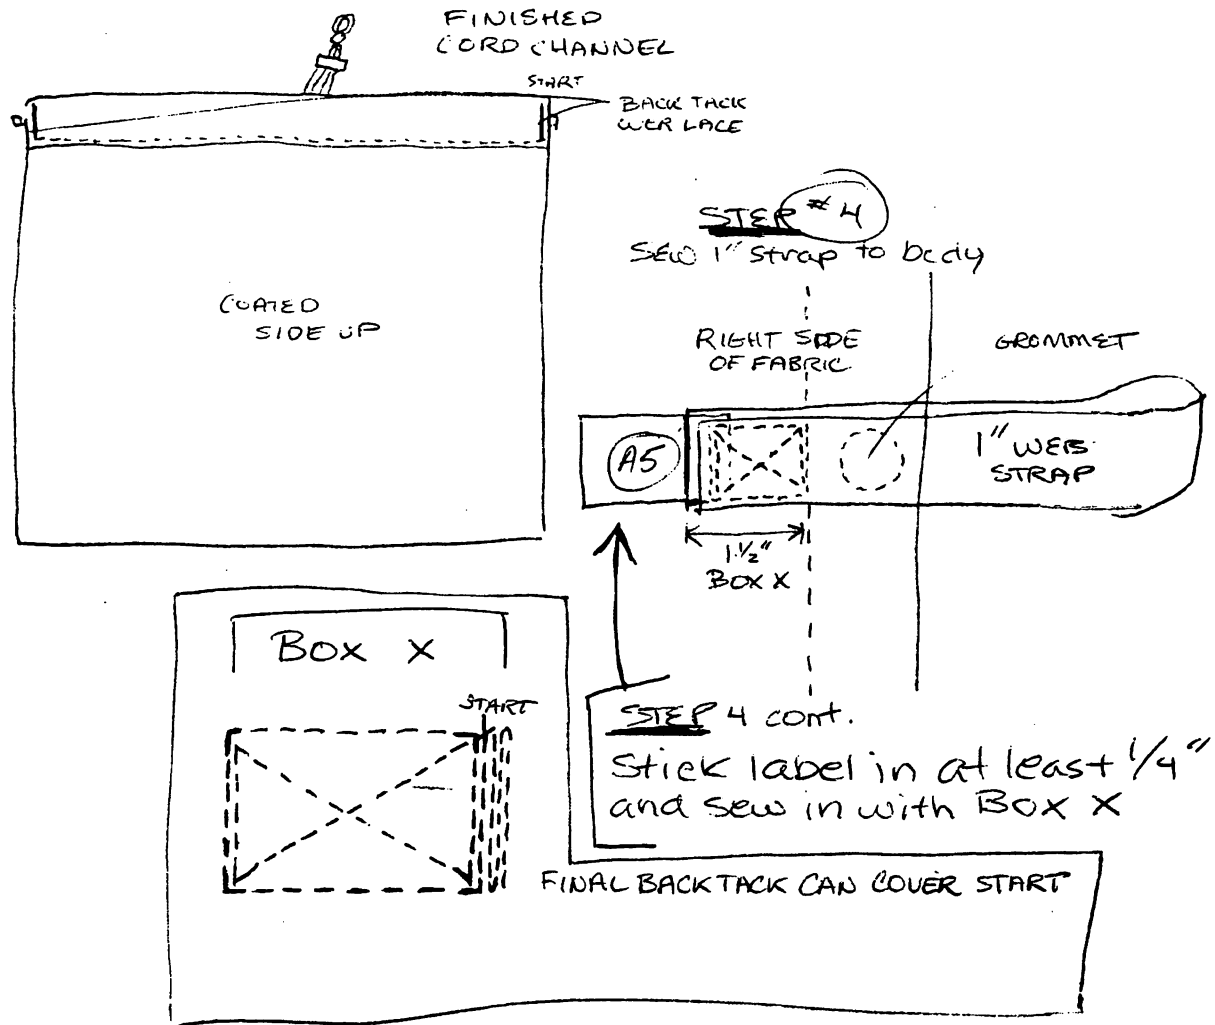 FINISHED
CORD CHANNEL
START
BACK TACK
OVER LACE
COATED
SIDE UP
STEP #4
Sew 1" strap to body
RIGHT SIDE
OF FABRIC
GROMMET
A5
1" WEB
STRAP
1 1/2"
BOX X
BOX X
START
STEP 4 cont.
Stick label in at least 1/4"
and sew in with Box X
FINAL BACKTACK CAN COVER START